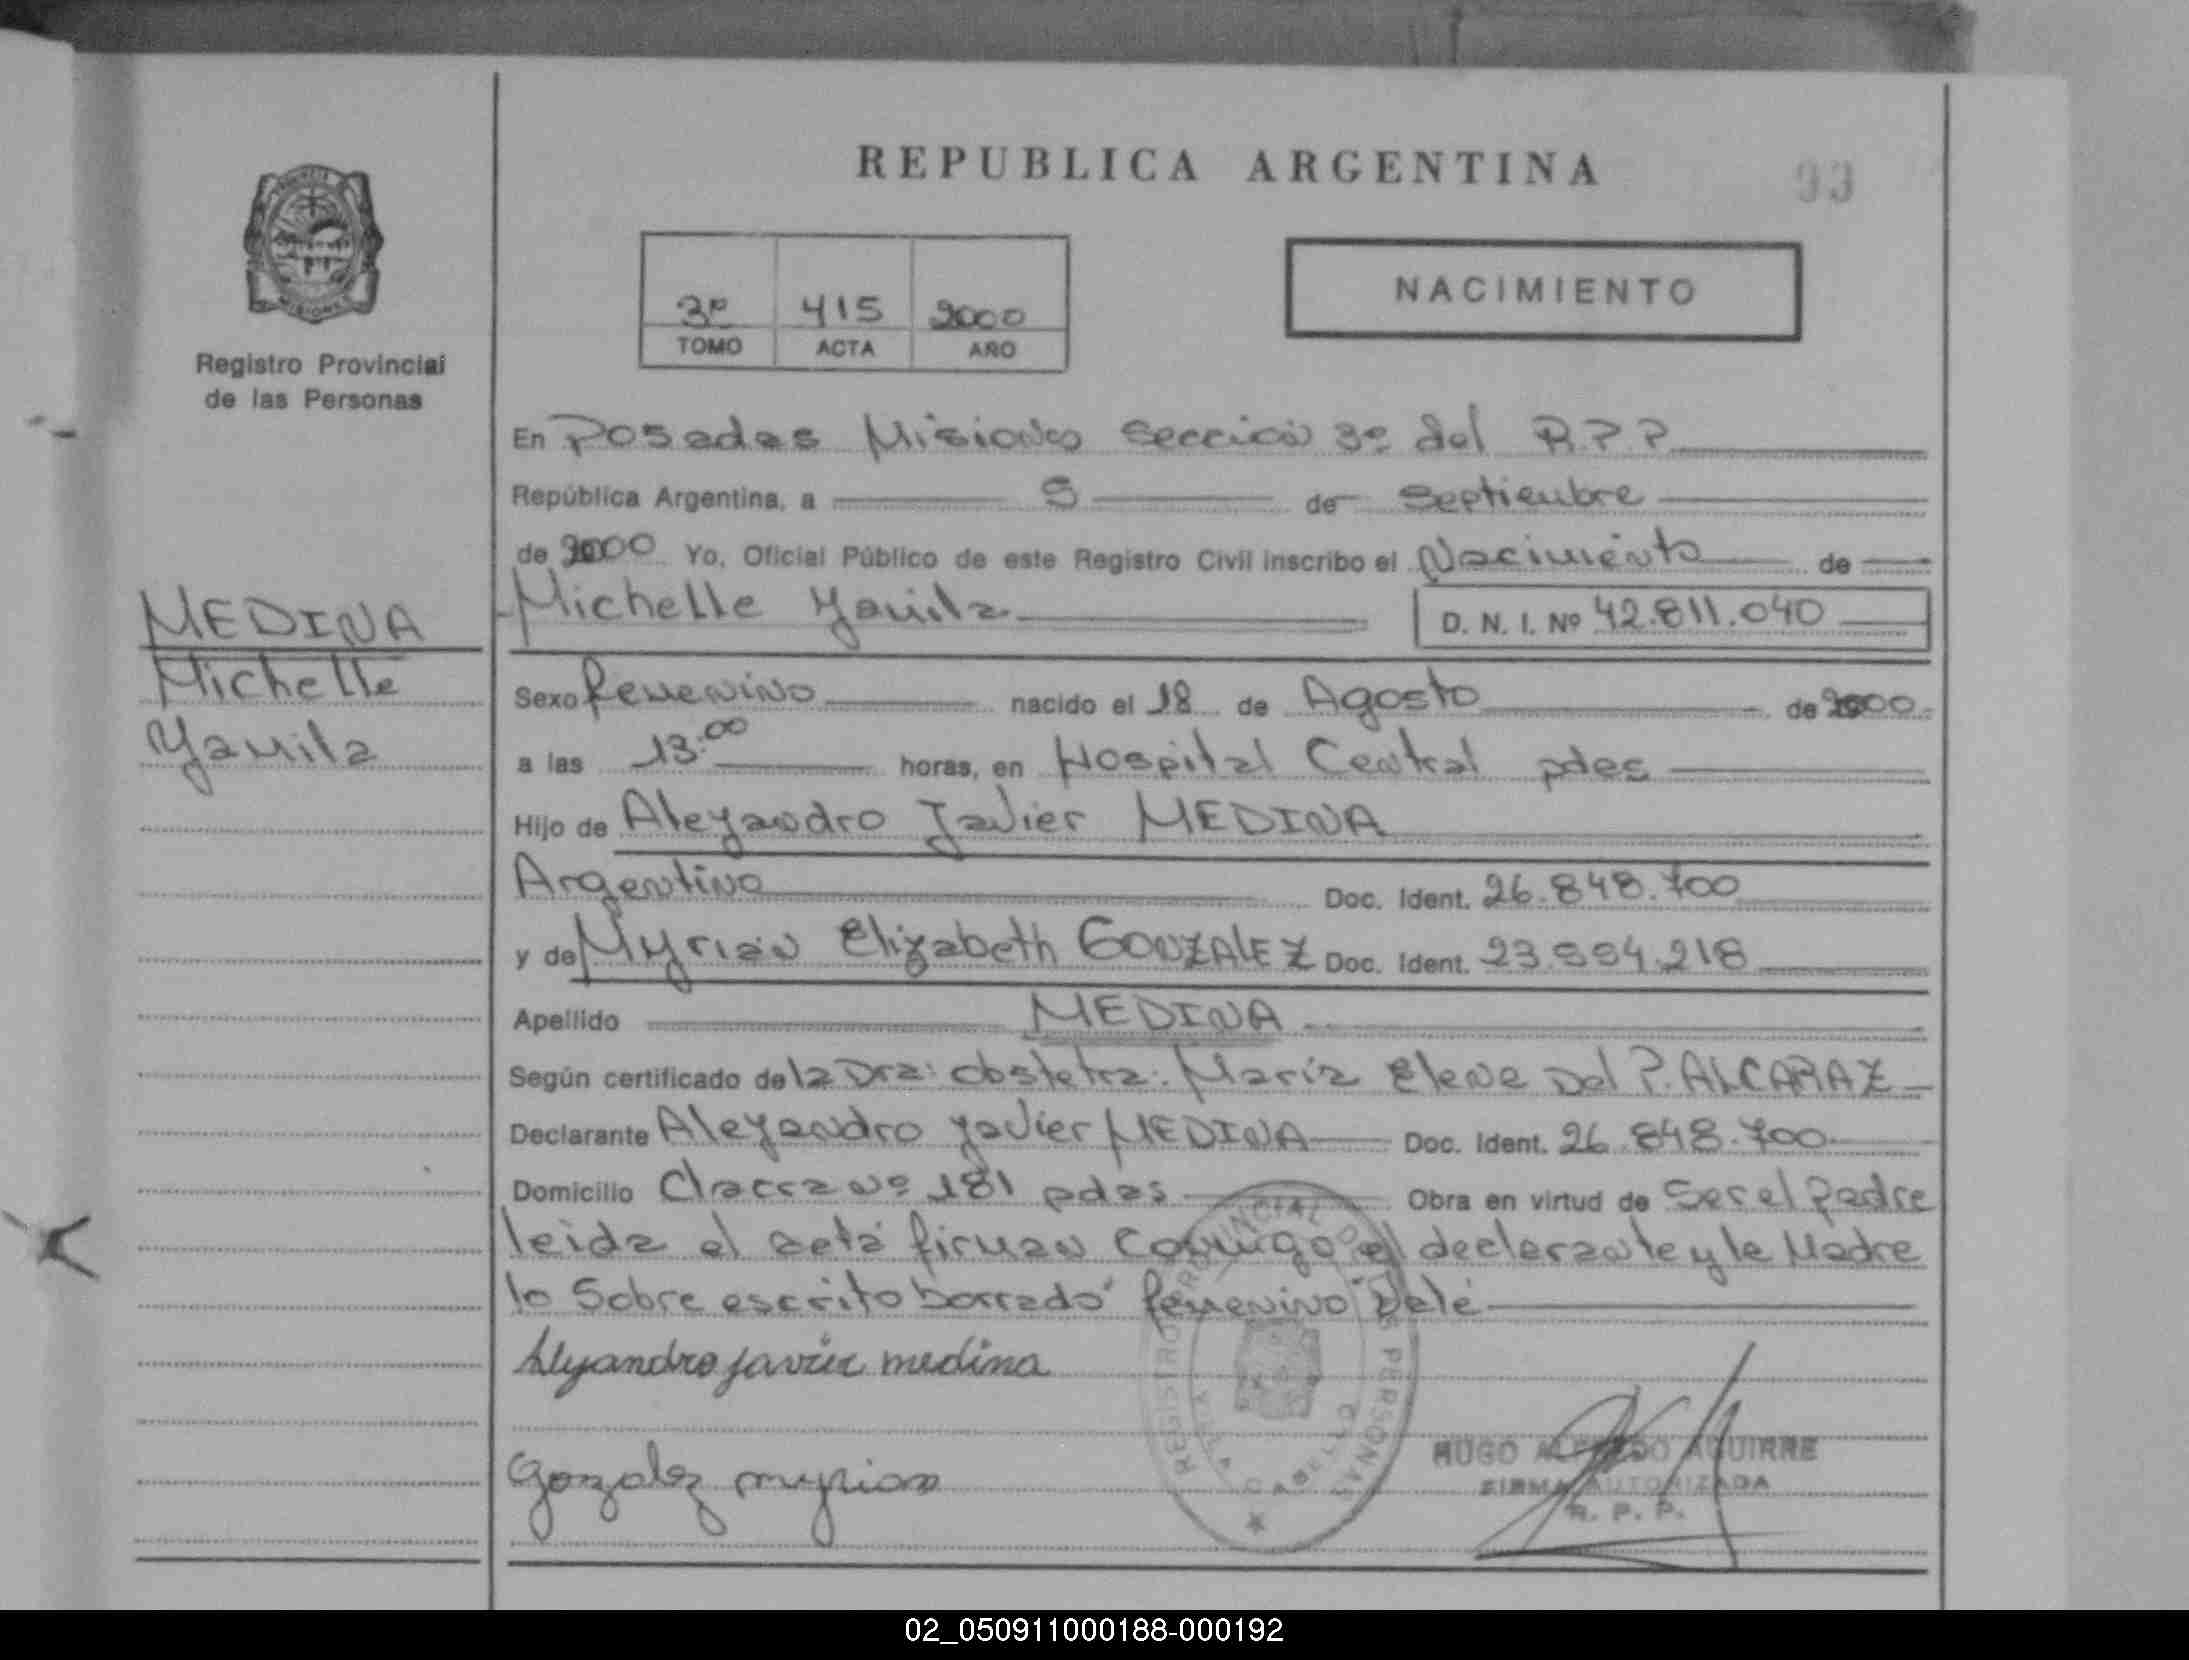 REPUBLICA ARGENTINA
93
3º 415 2000
TOMO ACTA AÑO
NACIMIENTO
Registro Provincial
de las Personas
En Posadas Misiones Sección 3º del R.P.P
República Argentina, a de Septiembre
de 2000 Yo, Oficial Público de este Registro Civil inscribo el Nacimiento de
Michelle Yamila D. N. I. Nº 42.811.040
MEDINA
Michelle
Yamila
Sexo femenino nacido el 18 de Agosto de 2000
a las 13:00 horas, en Hospital Central pdas
Hijo de Aleyandro Javier MEDINA
Argentino Doc. Ident. 26.848.700
y de Myrian Elizabeth GONZALEZ Doc. Ident.
Apellido MEDINA
Según certificado de la Dra: obstetra: María Elena Del P. ALCARAZ
Declarante Aleyandro Javier MEDINA Doc. Ident. 26.848.700
Domicilio Chacra Nº 181 pdas Obra en virtud de Ser el Padre
leida el acta firman Conmigo el declarante y la Madre
lo Sobre escrito borrado "femenino" Vale
Alejandro javier medina
Gonzalez myrian
REGISTRO PROVINCIAL DE LAS PERSONAS
VILLA CABELLO
HUGO ALFREDO AGUIRRE
FIRMA AUTORIZADA
R. P. P.
02_050911000188-000192